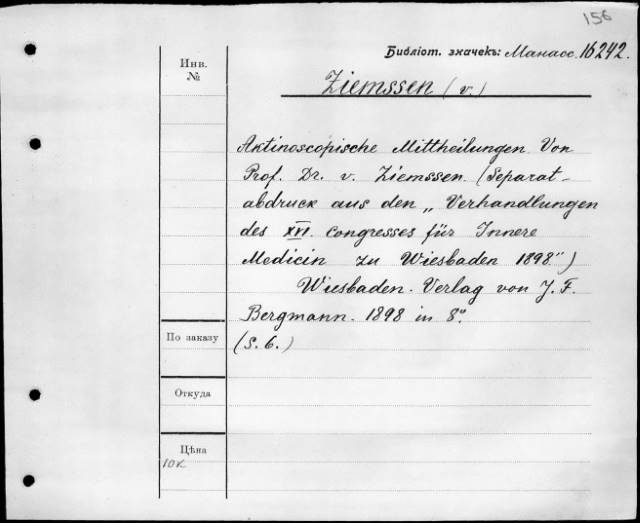 156
Библіот. значекъ: Манасс. 16242.
Инв.
№
Ziemssen (v.)
Aktinoscopische Mittheilungen. Von
Prof. Dr. v. Ziemssen. (Separat-
abdruck aus den „Verhandlungen
des XVI. Congresses für Innere
Medicin zu Wiesbaden 1898")
Wiesbaden. Verlag von J. F.
Bergmann. 1898 in 8º.
По заказу
(S. 6.)
Откуда
Цѣна
10к